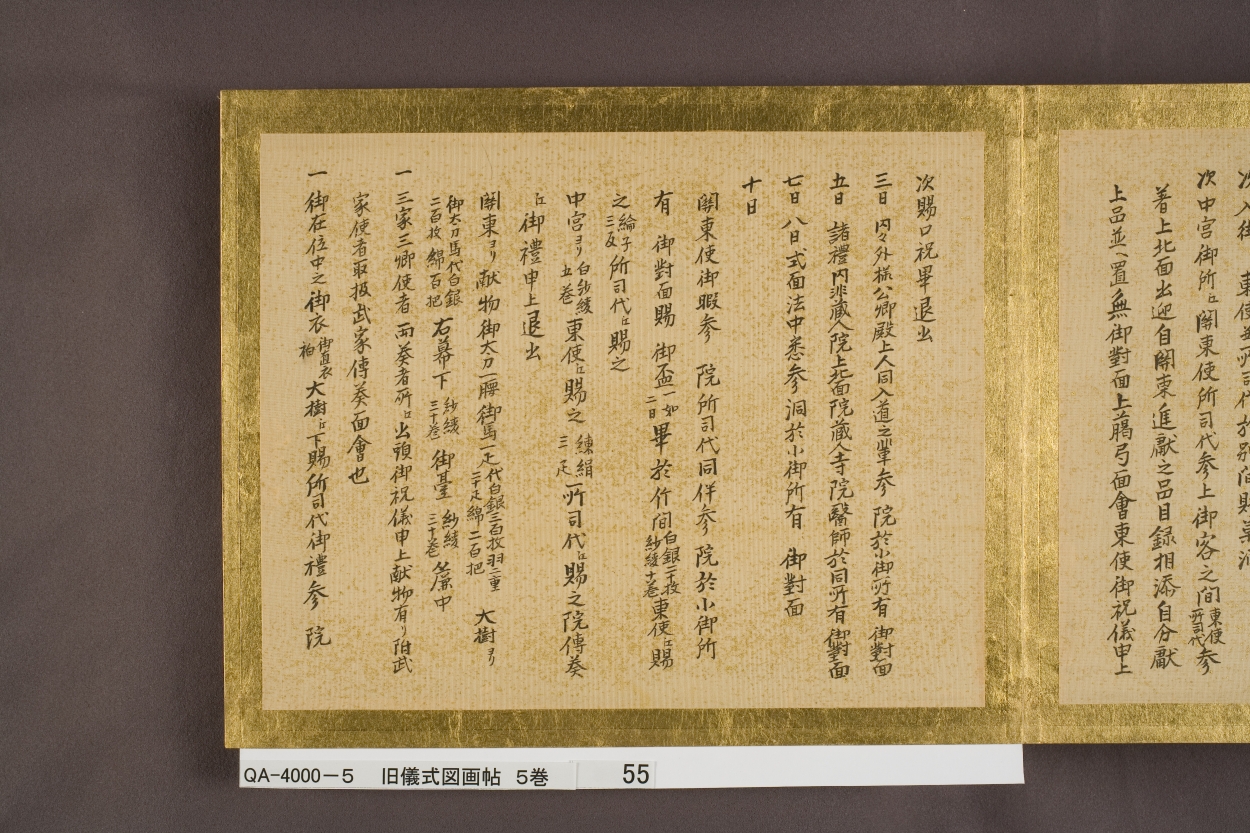 次中宮御所江関東使所司代参上御客之間東使所司代参
着上北面出迎自関東進献之品目録相添自分献
上品並置無御對面上臈弓面會東使御祝儀申上
次賜口祝畢退出
三日 内々外様公卿殿上人同入道之輩参 院於小御所有 御對面
五日 諸禮内非蔵人院上北面院蔵人寺院醫師於同所有 御對面
七日 八日式面法中悉参 洞於小御所有 御對面
十日
関東使御暇参 院所司代同伴参 院於小御所
有 御對面賜 御盃一如二日畢於竹間白銀二千枚紗綾十巻東使江賜
之綸子三反所司代江賜之
中宮ヨリ白紗綾五巻東使江賜之 練絹三疋所司代江賜之院傳奏
江御禮申上退出
関東ヨリ献物御太刀一腰御馬一疋代白銀三百枚羽二重二十疋綿二百把 大樹ヨリ
御太刀馬代白銀二百枚綿百把右幕下紗綾三十巻御臺紗綾三十巻簾中
一三家三卿使者両奏者所江出頭御祝儀申上献物有リ附武
家使者取扱武家傳奏面會也
一御在位中之御衣御直衣袙大樹江下賜所司代御禮参 院
QA-4000-5 旧儀式図画帖 5巻 55